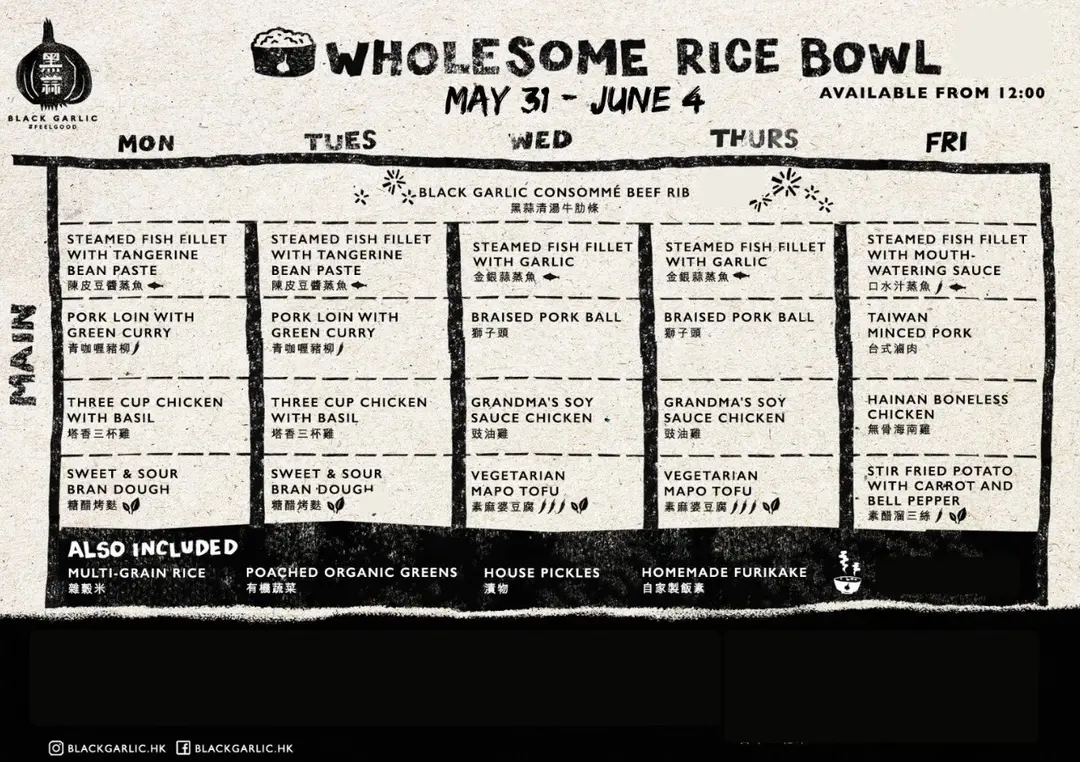 黑蒜
BLACK GARLIC
#FEELGOOD
WHOLESOME RICE BOWL
MAY 31 - JUNE 4
AVAILABLE FROM 12:00
MON
TUES
WED
THURS
FRI
MAIN
BLACK GARLIC CONSOMMÉ BEEF RIB
黑蒜清湯牛肋條
STEAMED FISH FILLET
WITH TANGERINE
BEAN PASTE
陳皮豆醬蒸魚
STEAMED FISH FILLET
WITH TANGERINE
BEAN PASTE
陳皮豆醬蒸魚
STEAMED FISH FILLET
WITH GARLIC
金銀蒜蒸魚
STEAMED FISH FILLET
WITH GARLIC
金銀蒜蒸魚
STEAMED FISH FILLET
WITH MOUTH-
WATERING SAUCE
口水汁蒸魚
PORK LOIN WITH
GREEN CURRY
青咖喱豬柳
PORK LOIN WITH
GREEN CURRY
青咖喱豬柳
BRAISED PORK BALL
獅子頭
BRAISED PORK BALL
獅子頭
TAIWAN
MINCED PORK
台式滷肉
THREE CUP CHICKEN
WITH BASIL
塔香三杯雞
THREE CUP CHICKEN
WITH BASIL
塔香三杯雞
GRANDMA'S SOY
SAUCE CHICKEN
豉油雞
GRANDMA'S SOY
SAUCE CHICKEN
豉油雞
HAINAN BONELESS
CHICKEN
無骨海南雞
SWEET & SOUR
BRAN DOUGH
糖醋烤麩
SWEET & SOUR
BRAN DOUGH
糖醋烤麩
VEGETARIAN
MAPO TOFU
素麻婆豆腐
VEGETARIAN
MAPO TOFU
素麻婆豆腐
STIR FRIED POTATO
WITH CARROT AND
BELL PEPPER
素醋溜三絲
ALSO INCLUDED
MULTI-GRAIN RICE
雜穀米
POACHED ORGANIC GREENS
有機蔬菜
HOUSE PICKLES
漬物
HOMEMADE FURIKAKE
自家製飯素
BLACKGARLIC.HK
BLACKGARLIC.HK